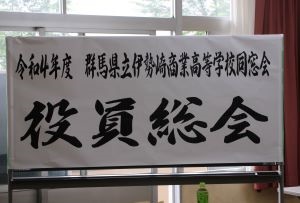 令和4年度 群馬県立伊勢崎商業高等学校同窓会
役員総会